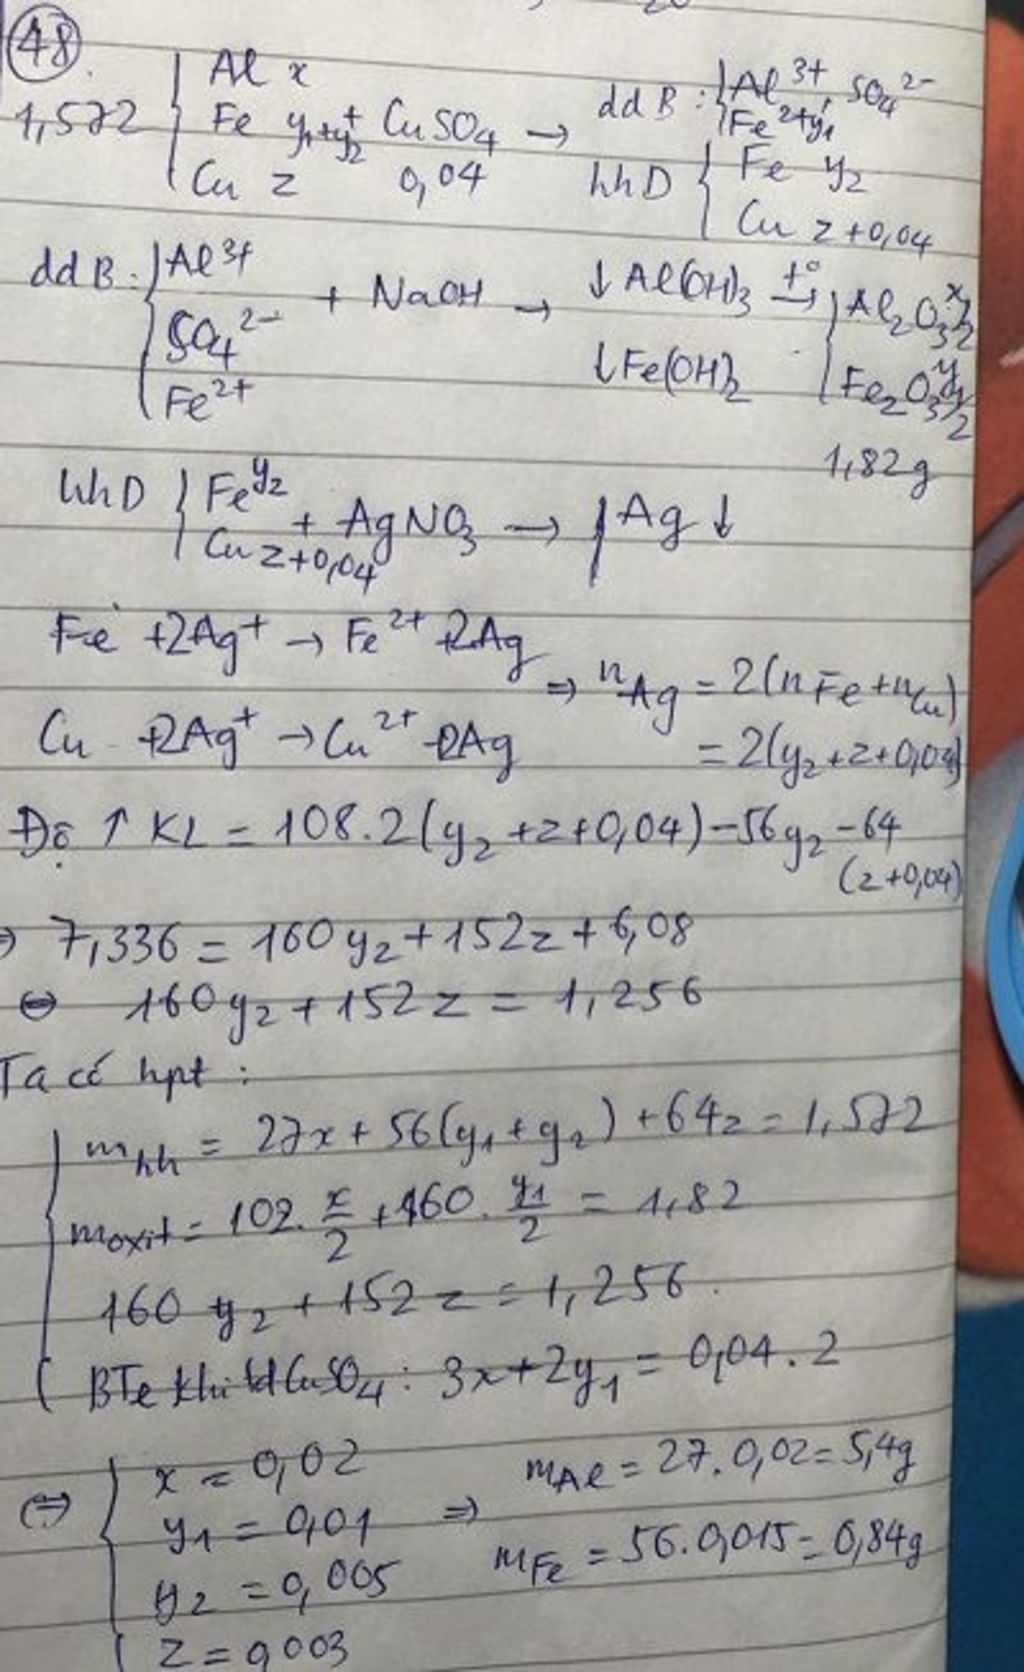 48
1,572 { Al x
Fe y₁+y₂ + CuSO₄ → ddB : { Al³⁺, SO₄²⁻
Fe²⁺ y₁
Cu z 0,04 hhD { Fe y₂
Cu z+0,04
ddB : { Al³⁺
SO₄²⁻ + NaOH → ↓Al(OH)₃ t° → { Al₂O₃ x/2
Fe²⁺ ↓Fe(OH)₂ Fe₂O₃ y₁/2
1,82g
hhD { Fe y₂
Cu z+0,04 + AgNO₃ → Ag ↓
Fe + 2Ag⁺ → Fe²⁺ + 2Ag
⇒ nAg = 2(nFe + nCu)
Cu + 2Ag⁺ → Cu²⁺ + 2Ag
= 2(y₂ + z + 0,04)
Độ ↑ KL = 108.2(y₂ + z + 0,04) − 56y₂ − 64
(z+0,04)
⇒ 7,336 = 160y₂ + 152z + 6,08
⇔ 160y₂ + 152z = 1,256
Ta có hpt :
mhh = 27x + 56(y₁ + y₂) + 64z = 1,572
moxit = 102. x/2 + 160. y₁/2 = 1,82
160y₂ + 152z = 1,256.
BTe khi td CuSO₄ : 3x + 2y₁ = 0,04.2
⇔ { x = 0,02
y₁ = 0,01
y₂ = 0,005
z = 0,003
⇒ mAl = 27.0,02 = 5,4g
mFe = 56.0,015 = 0,84g